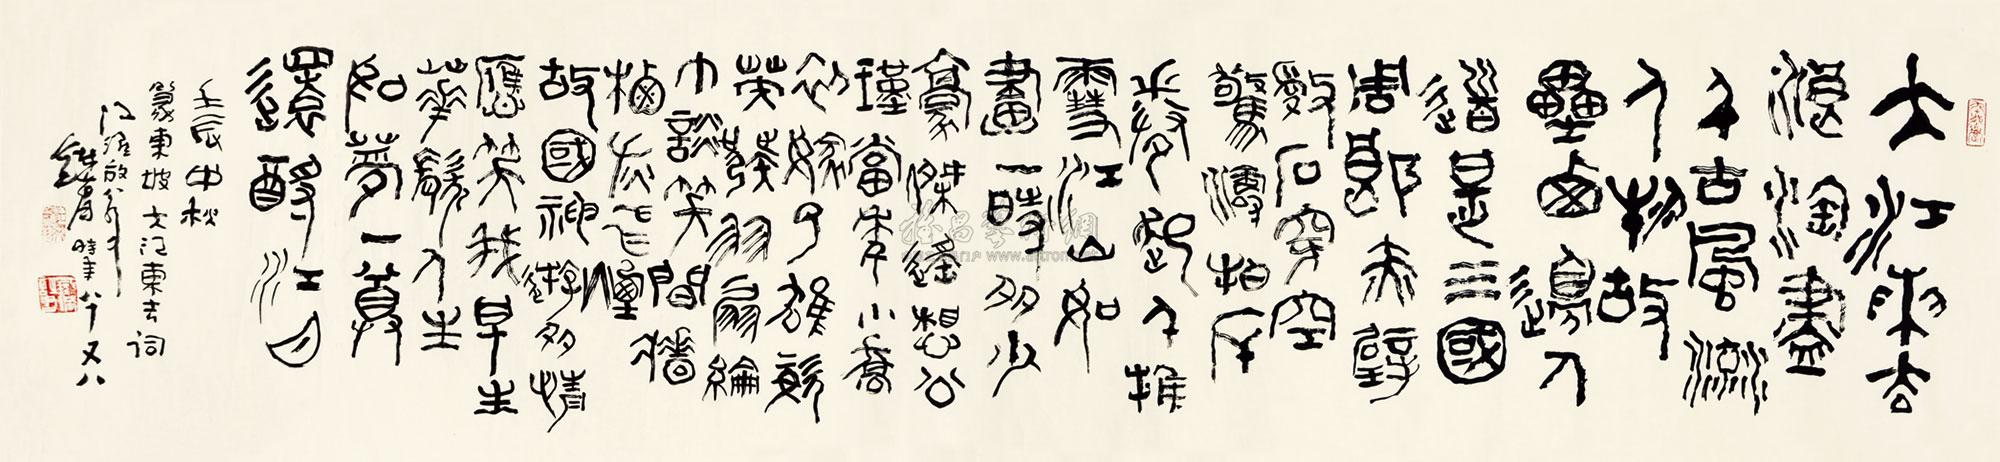 大江東去
浪淘盡
千古風流
人物故
壘西邊人
道是三國
周郎赤壁
亂石穿空
驚濤拍岸
卷起千堆
雪江山如
畫一時多少
豪傑遙想公
瑾當年小喬
初嫁了雄姿
英發羽扇綸
巾談笑間檣
櫓灰飛煙
故國神游多情
應笑我早生
華髮人生
如夢一尊
還酹江月
壬辰中秋
篆東坡大江東去詞
時年八十又八